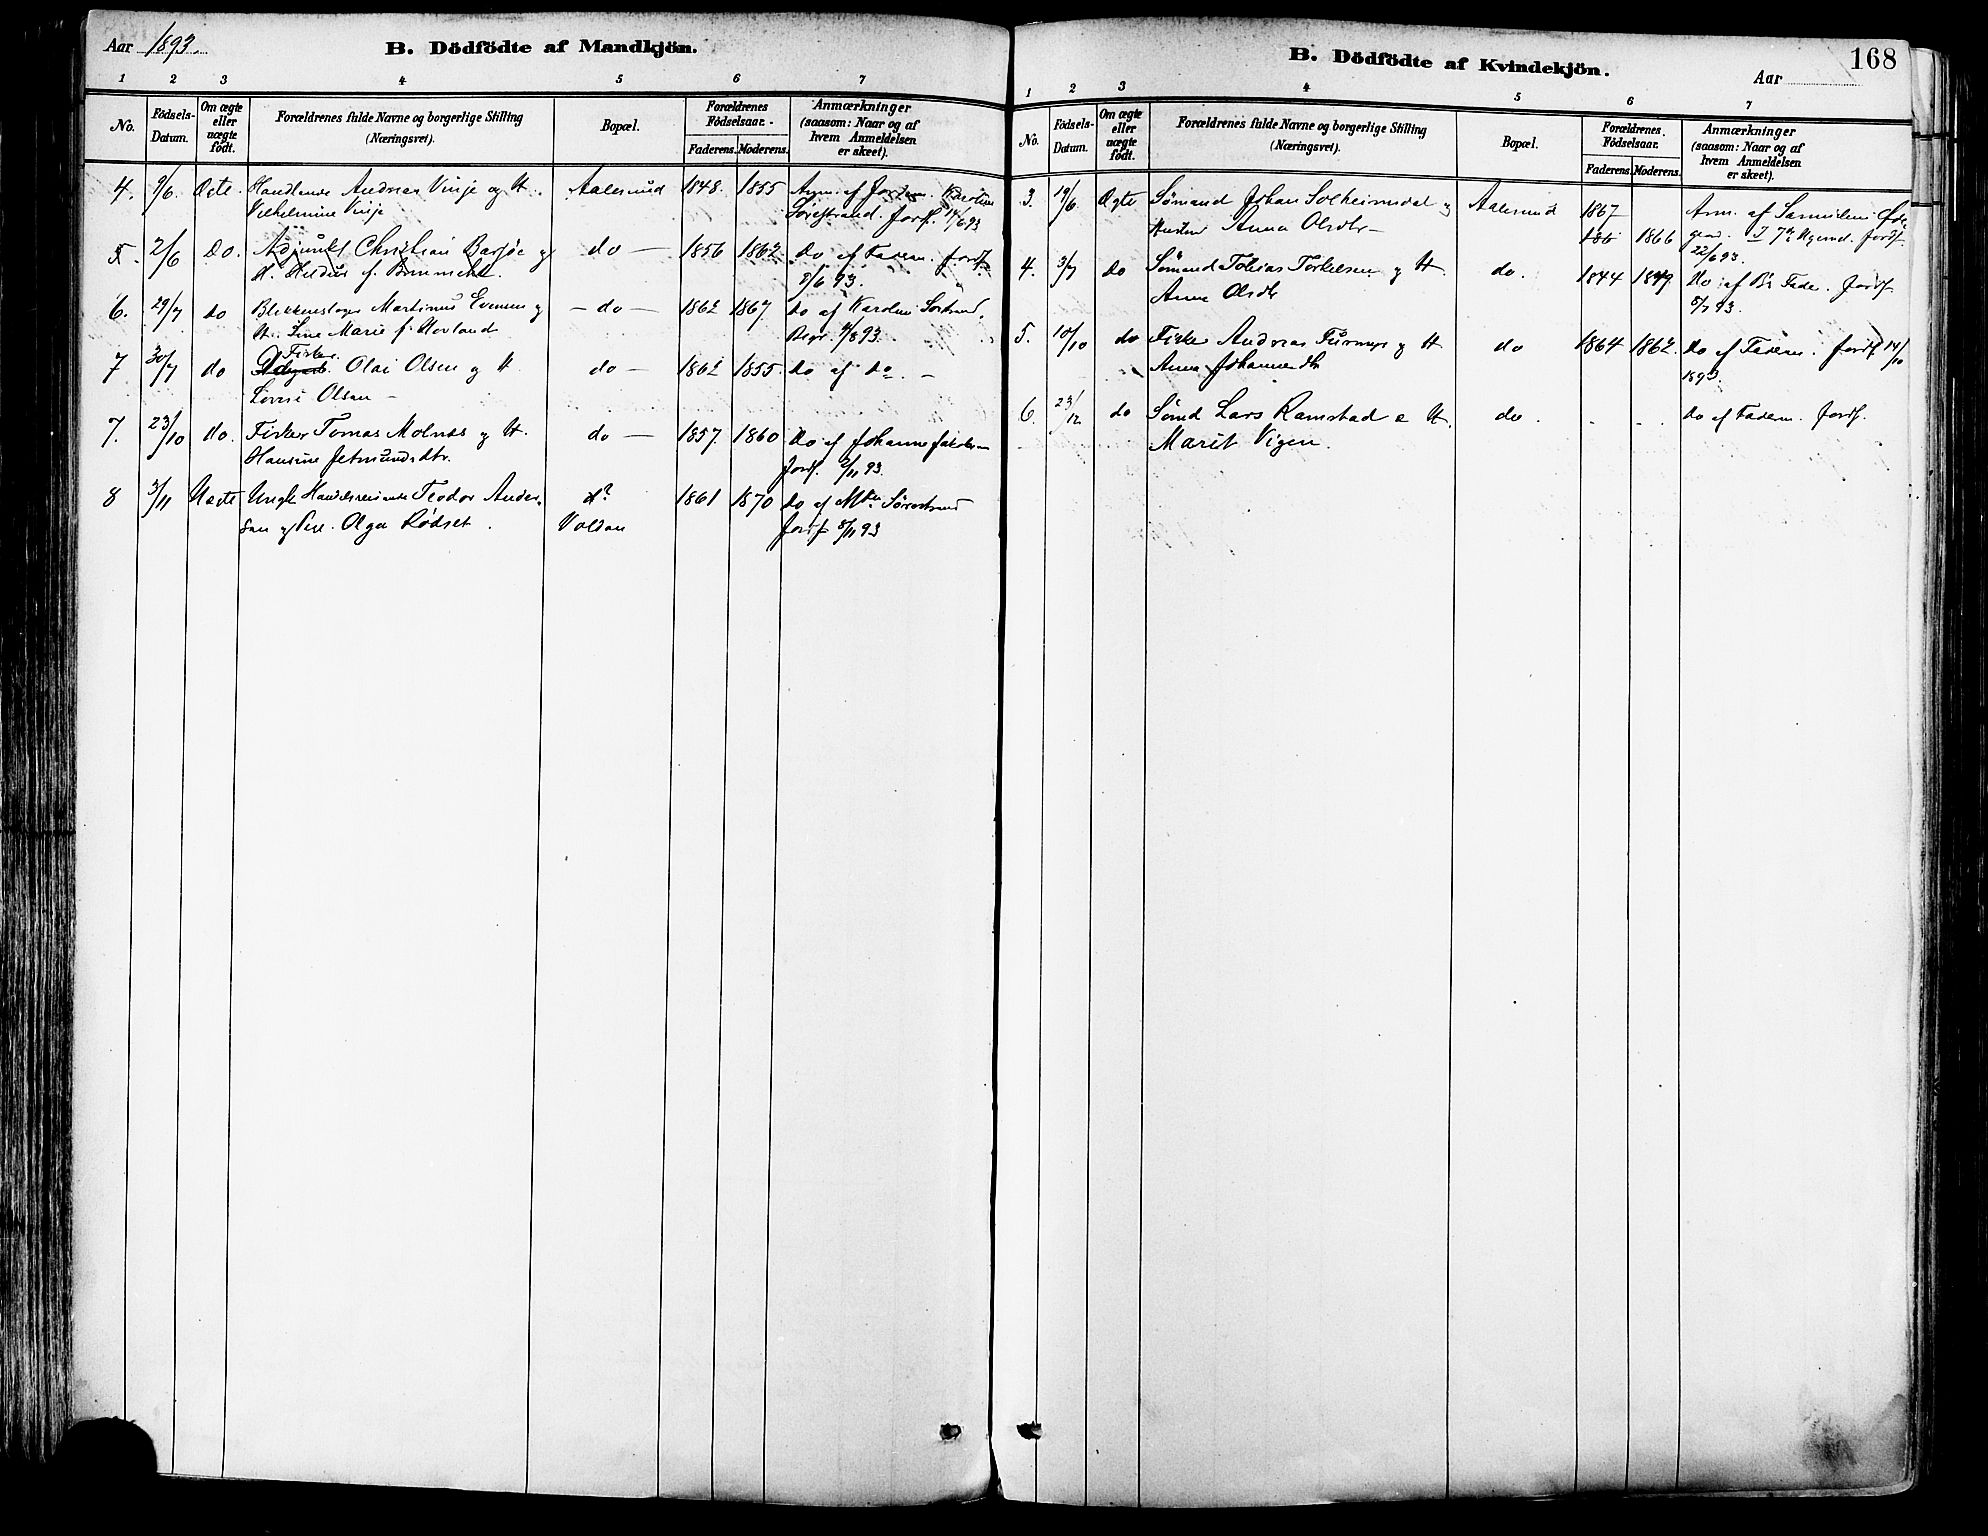 Aar 1893.
B. Dödfödte af Mandkjön.
1 2 3 4 5 6 7
No.
Födsels-Datum.
Om ægte eller uægte födt.
Forældrenes fulde Navne og borgerlige Stilling (Næringsvei).
Bopæl.
Forældrenes Födselsaar.
Faderens. Moderens.
Anmærkninger (saasom: Naar og af hvem Anmeldelsen er skeet).
4. 9/6 Ægte. Handlende Andreas Vinje og H. Aalesund 1848. 1855 Anm. af Jordm. Karoline
Vilhelmine Vinje Sørestrand. Jordf. 14/6 93
5. 2/6 Do. Adjunkt Christian Barsøe og do — 1856 1862 Do af Faderen. Jordf
H. f. 9/6 93.
6. 29/7 do Blikkenslager Martinus Evensen og — do — 1862 1867 Do af Karoline
H. Line Marie f. Hovland Begr. 4/8 93.
7 30/7 do Fisker Olai Olsen og H. do — 1862 1855. Do af do. —
Lovise Olsen —
7. 23/10 do. Fisker Tomas Molnes og H. do — 1857. 1860 Do af Johanne
Hansine Jetmundsdtr. Jordf. 2/11 93.
8 3/11 Uægte Ungk. Handelsreisende Teodor Ander- do 1861 1870 Do af Sørestrand
sen og Pige. Olga Rødset. Volden Jordf 8/11 93
B. Dödfödte af Kvindekjön.
Aar
168
1 2 3 4 5 6 7
No.
Födsels-Datum.
Om ægte eller uægte födt.
Forældrenes fulde Navne og borgerlige Stilling (Næringsvei).
Bopæl.
Forældrenes Födselsaar.
Faderens. Moderens.
Anmærkninger (saasom: Naar og af hvem Anmeldelsen er skeet).
3. 19/6 Ægte Sømand Johan Solheimsdal og Aalesund 1867 Anm. af
Hustru Anna Olsdtr — 186 1866 Jordf.
22/6 93.
4. 3/7 do Sømand Tobias Torkelsen og H. do. 1844 1849. Do af Fader. Jordf
Anne Olsdtr 8/7 93.
5. 10/10 do Fisker Andreas og H do 1864 1862. Do af Faderen. Jordf 14/10
Anna Johannesdtr 1893.
6. 23/12 do Sømd Lars Ramstad e H. do. Do af Faderen. Jordf.
Marit Vigen.